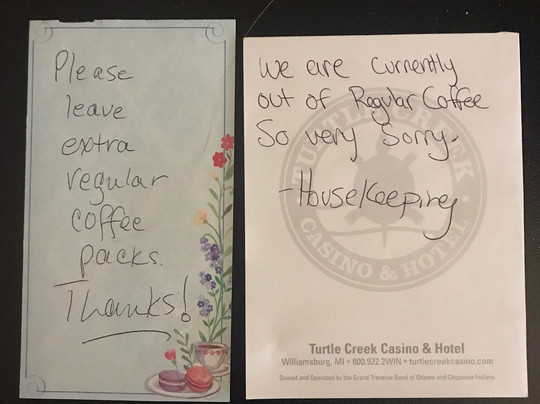 Please
leave
extra
regular
coffee
packs.
Thanks!
We are currently
out of Regular Coffee
So very Sorry.
-Housekeeping
TURTLE CREEK
CASINO & HOTEL
Turtle Creek Casino & Hotel
Williamsburg, MI • 800.922.2WIN • turtlecreekcasino.com
Owned and Operated by the Grand Traverse Band of Ottawa and Chippewa Indians.